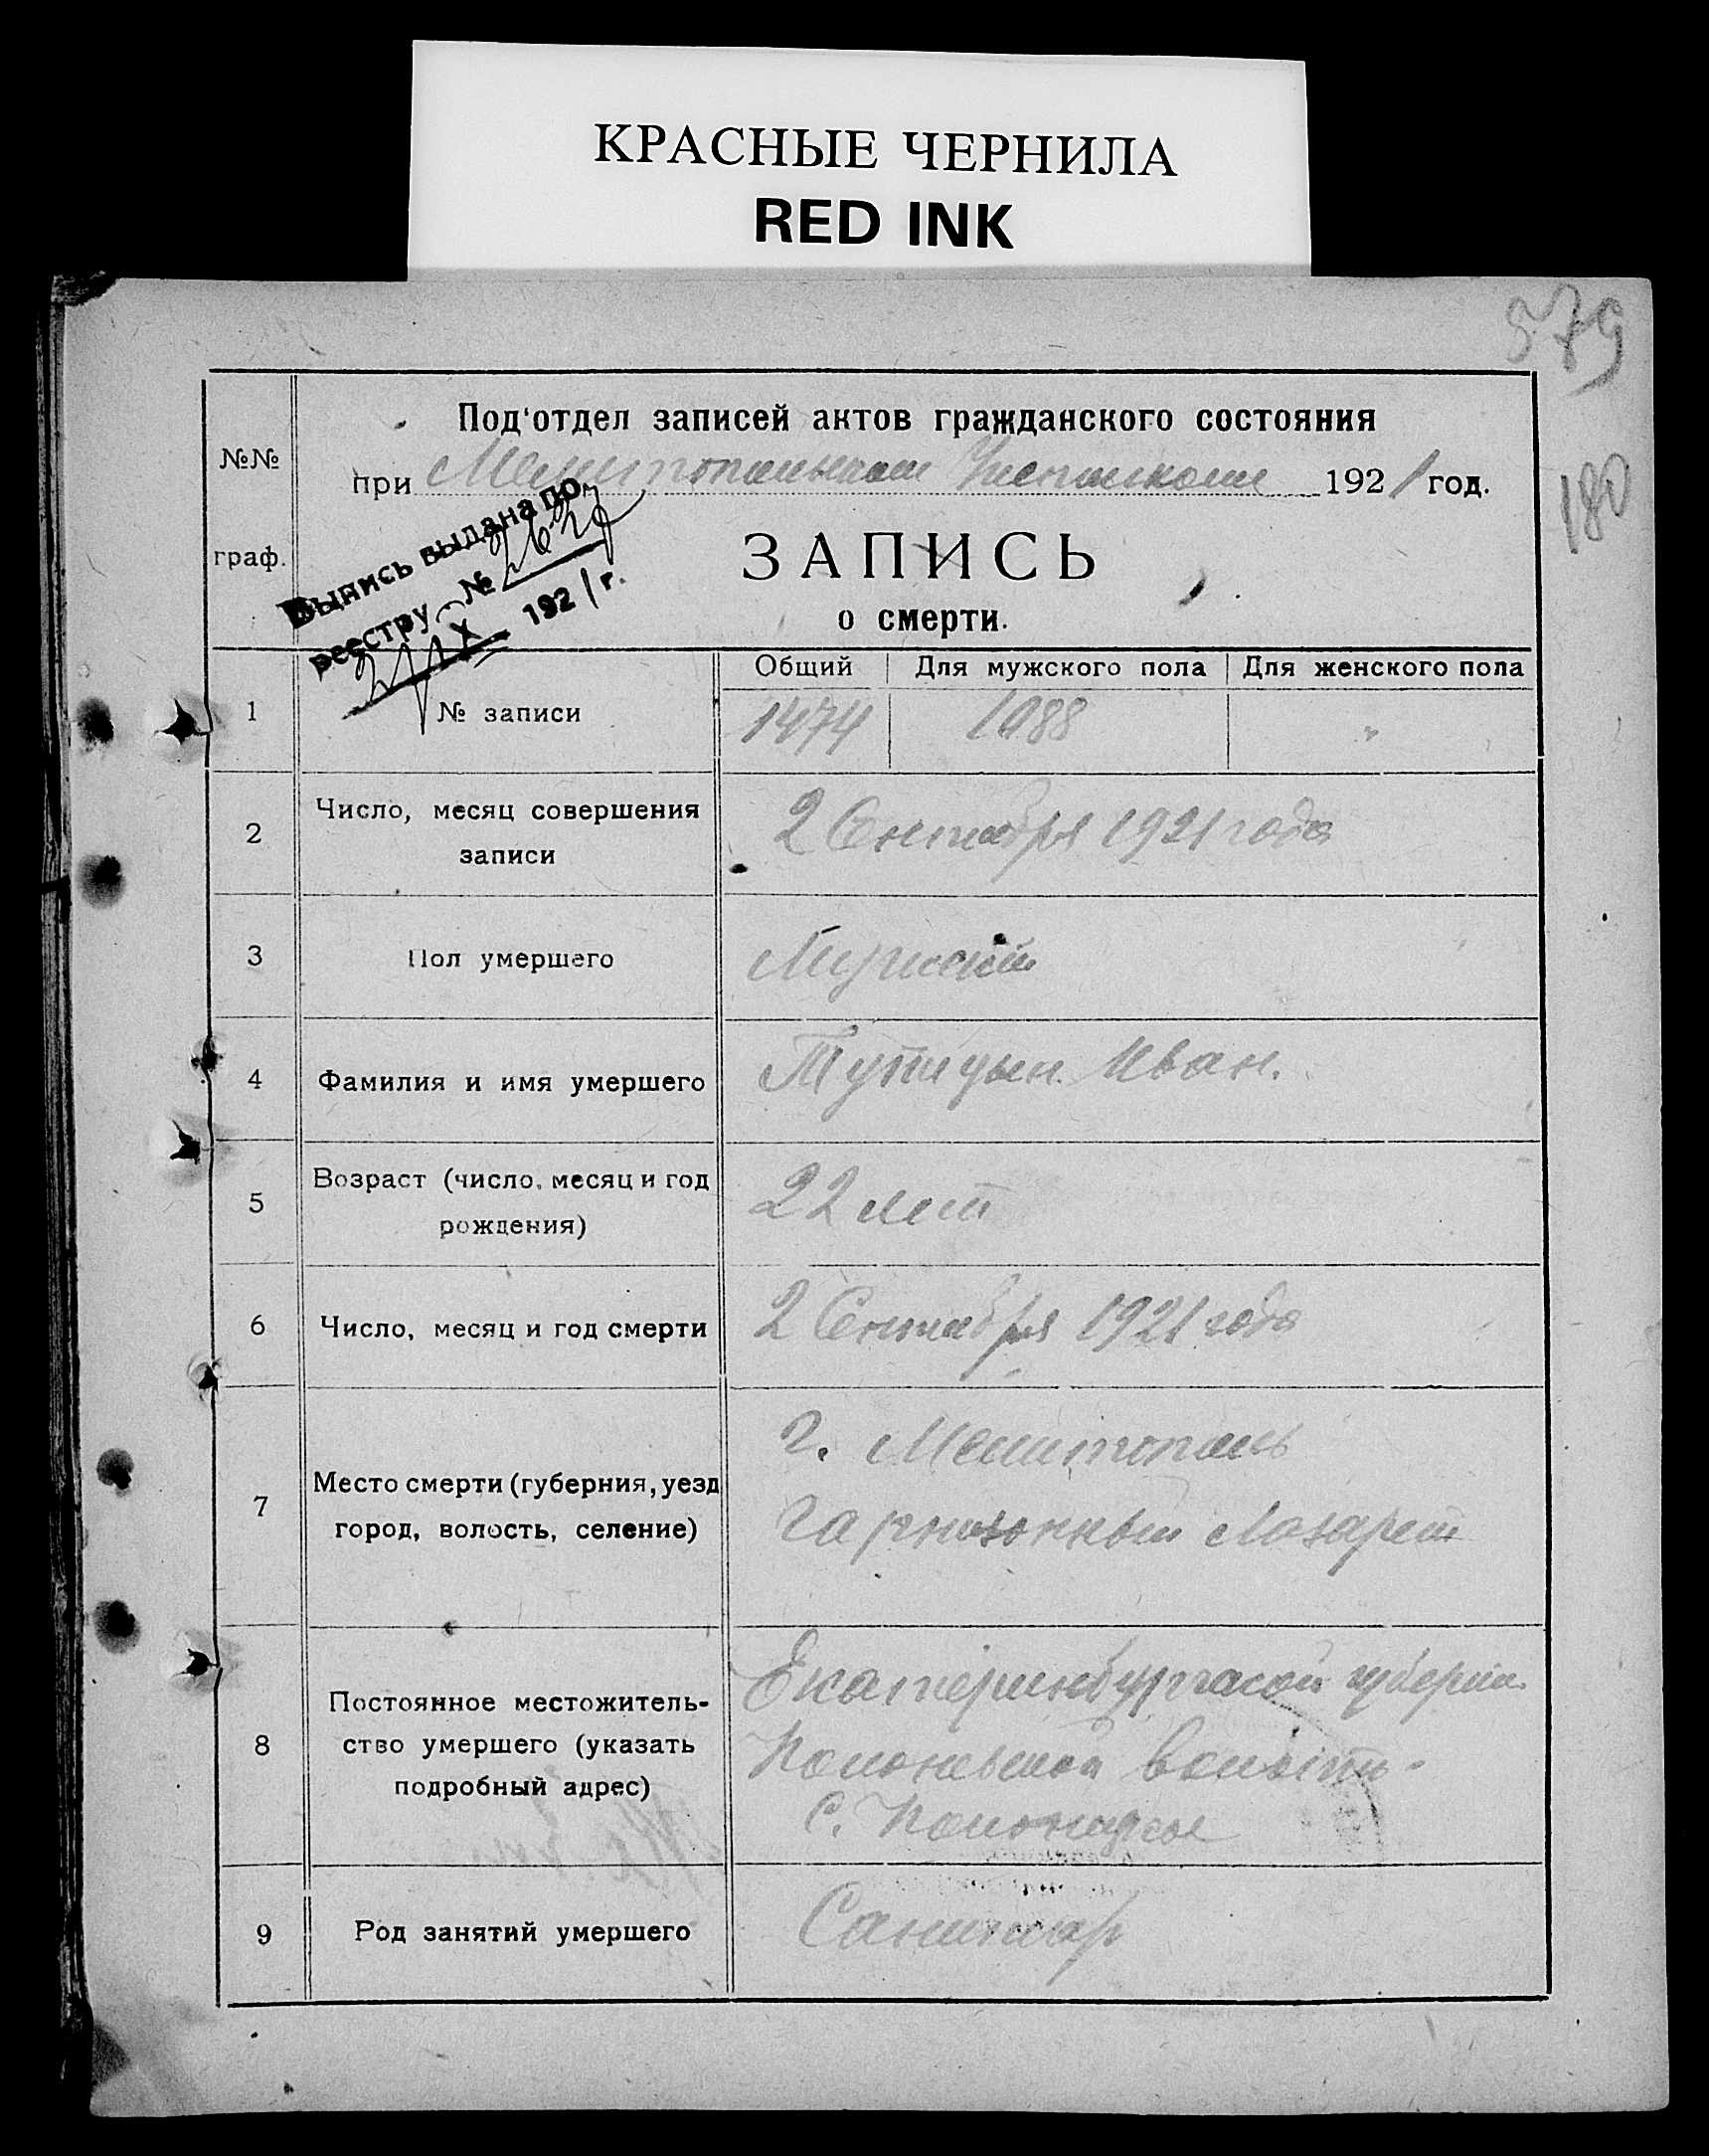 КРАСНЫЕ ЧЕРНИЛА
RED INK
579
180
№№ граф.
Под'отдел записей актов гражданского состояния
при Мелитопольском 1921 год.
Выпись выдана по
реестру №
X 1921 г.
ЗАПИСЬ
о смерти.
Общий Для мужского пола Для женского пола
1 № записи 1474 1088 "
2 Число, месяц совершения
записи
2 Сентября 1921 года
3 Пол умершего Мужской
4 Фамилия и имя умершего Иван.
5 Возраст (число, месяц и год
рождения)
22 лет
6 Число, месяц и год смерти 2 Сентября 1921 года
7 Место смерти (губерния, уезд
город, волость, селение)
г. Мелитополь
Гарнизонный Лазарет
8 Постоянное местожитель-
ство умершего (указать
подробный адрес)
Екатеринбургской губерни
волости
с.
9 Род занятий умершего Санитар